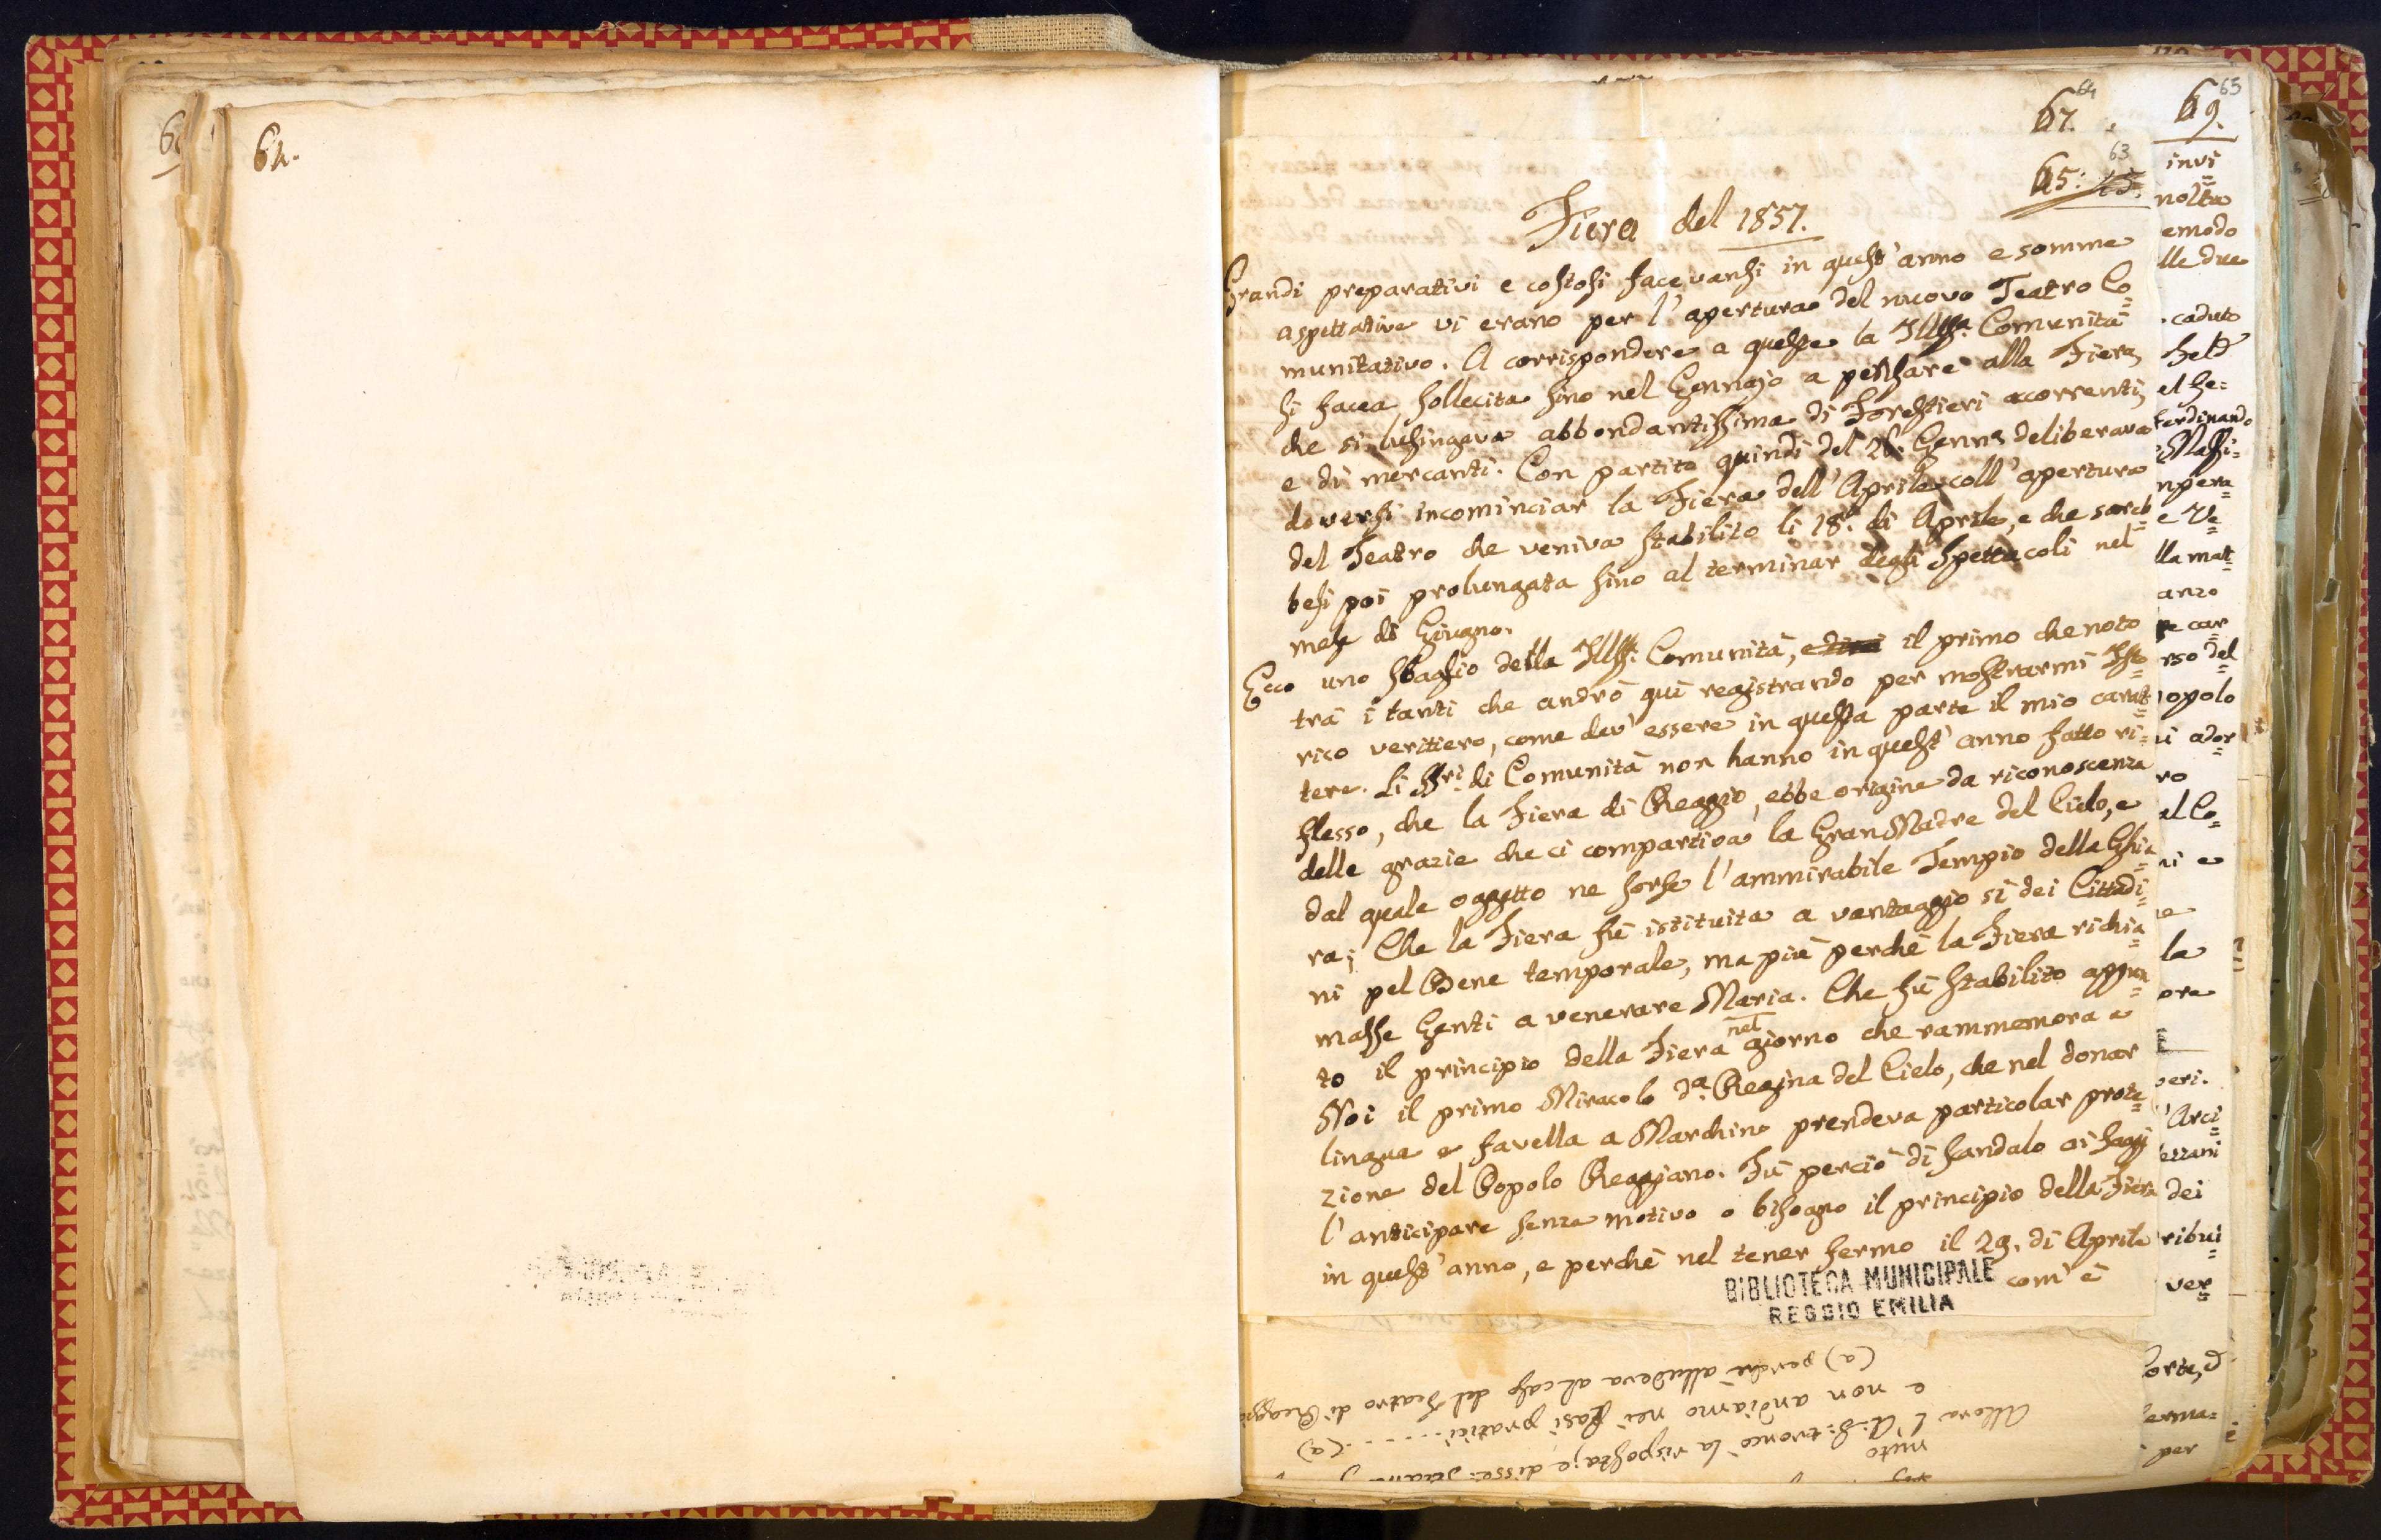 64.
67. 64
69. 65
65. 63
Fiera del 1857.
Grandi preparativi e costosi facevansi in quest'anno e somme
aspettative vi erano per l'apertura del nuovo Teatro Co=
munitativo. A corrispondere a queste la Illma. Comunità
si facea sollecita sino nel Gennajo a pensare alla Fiera,
che si lusingava abbondantissima di Forestieri accorrenti,
e di mercanti. Con partito quindi del 26. Genn. deliberava
doversi incominciar la Fiera dell'Aprile coll'apertura
del Teatro che veniva stabilito li 18. di Aprile, e che sareb=
besi poi prolungata sino al terminar degli Spettacoli nel
mese di Giugno.
Ecco uno sbaglio della Illss. Comunità, il primo che noto
trà i tanti che andrò quì registrando per mostrarmi Isto=
rico veritiero, come dev'essere in questa parte il mio carat=
tere. Li SSri. di Comunità non hanno in quest'anno fatto ri=
flesso, che la Fiera di Reggio, ebbe origine da riconoscenza
delle grazie che ci compartiva la Gran Madre del Cielo, e
dal quale oggetto ne sorse l'ammirabile Tempio della Ghia=
ra; Che la Fiera fù istituita a vantaggio sì dei Cittadi=
ni pel Bene temporale, ma più perchè la Fiera richia=
masse Genti a venerare Maria. Che fù stabilito appun=
to il principio della Fiera nel giorno che rammemora a
Noi il primo Miracolo da. Regina del Cielo, che nel donar
lingua e favella a Marchino prendeva particolar prote=
zione del Popolo Reggiano. Fù perciò di scandalo ai saggi
l'anticipare senza motivo o bisogno il principio della Fiera
in quest'anno, e perchè nel tener fermo il 29. di Aprile
com'è
BIBLIOTECA MUNICIPALE
REGGIO EMILIA
invi=
molta
emodo
lle due
caduto
feld
el fe=
Ferdinando
Massi=
mpera=
e Ve=
lla mat=
anzo
car=
rso del=
opolo
ador=
ro
al Co=
ni e
la
ora
peri.
Arci=
dei
ribui=
ver=
orte, d
erma=
per
(a) perchè alludeva al caso del Teatro di Reggio
e non andiamo nei Casi pratici..... (a)
Allora l'A. S. troncò la risposta; e disse:
nuto